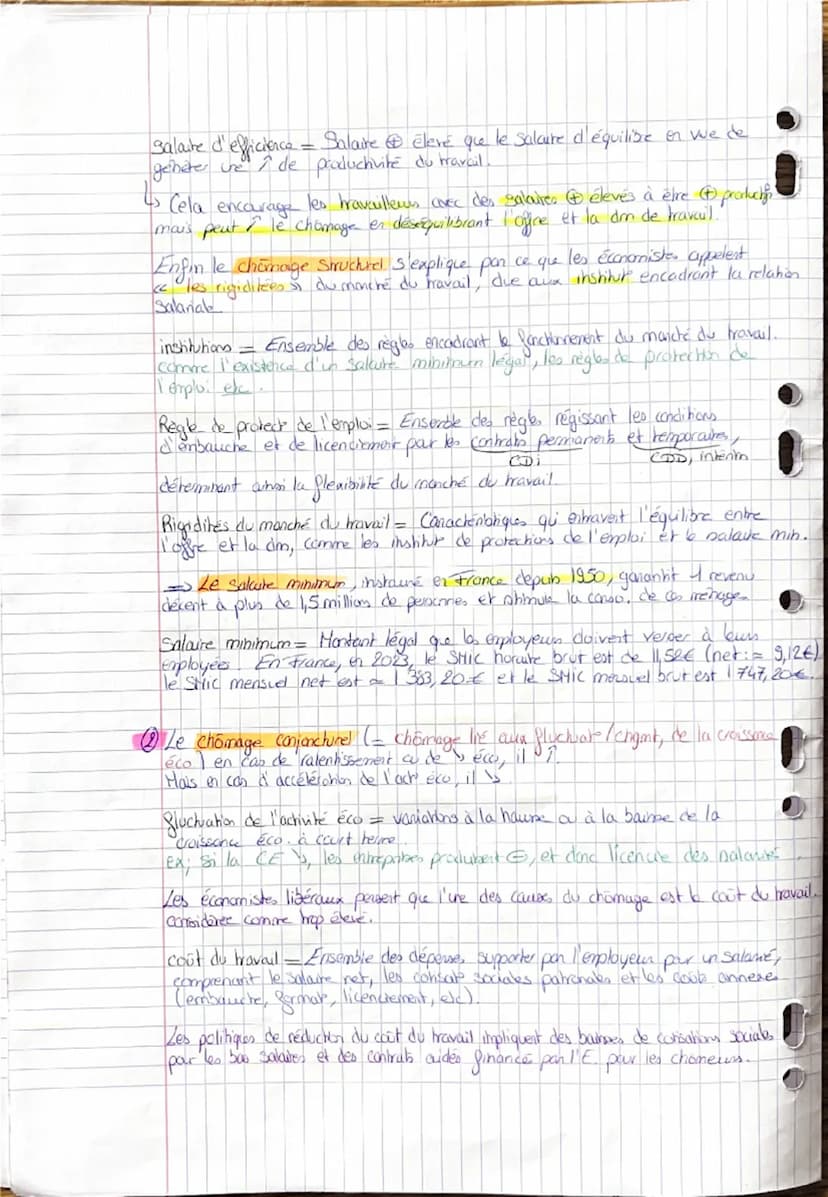 Salaire d'efficience = Salaire ⊕ élevé que le salaire d'équilibre en vue de
générer une ↑ de productivité du travail.
↳ Cela encourage les travailleurs avec des salaires ⊕ élevés à être ⊕ productifs
mais peut ↑ le chômage en déséquilibrant l'offre et la dm de travail.
Enfin le chômage structurel s'explique par ce que les économistes appelent
« les rigiditées » du marché du travail, due aux institut° encadrant la relation
Salariale
institutions = Ensemble des règles encadrant le fonctionnement du marché du travail.
comme l'existence d'un salaire minimum légal, les règles de protection de
l'emploi etc.
Règle de protect° de l'emploi = Ensemble des règles régissant les conditions
d'embauche et de licenciement par les contrats permanents et temporaires,
CDi CDD, intérim
déterminant ainsi la flexibilité du marché du travail.
Rigidités du marché du travail = Caractéristiques qui entravent l'équilibre entre
l'offre et la dm, comme les institut° de protections de l'emploi et le salaire min.
⇒ Le Salaire minimum, instauré en France depuis 1950, garantit 1 revenu
décent à plus de 1,5 millions de personnes et stimule la conso. de ces ménages
Salaire minimum = Montant légal que les employeurs doivent verser à leurs
employées. En France, en 2023, le SMic horaire brut est de 11,52€ (net: = 9,12€)
le SMic mensuel net est ≈ 1 383,20 € et le SMic mensuel brut est 1 747,20€.
② Le chômage conjoncturel (= chômage lié aux fluctuat°/chgmt, de la croissance
éco) en cas de ralentissement ou de ↘ éco, il ↑.
Mais en cas d'accélération de l'act° éco, il ↘
fluctuation de l'activité éco = variations à la hausse ou à la baisse de la
croissance éco. à court terme
Ex; Si la CE ↘, les entreprises produisent ⊖, et donc licencie des salariés.
Les économistes libéraux pensent que l'une des causes du chômage est le coût du travail.
considérée comme trop élevé.
coût du travail = Ensemble des dépenses supporter par l'employeur pour un salarié,
comprenant le salaire net, les cotisat° sociales patronales et les coûts annexes
(embauche, format°, licenciement, etc).
Les politiques de réduction du coût du travail impliquent des baisses de cotisations sociales
par les bas salaires et des contrats aidés financé par l'E. pour les chômeurs.